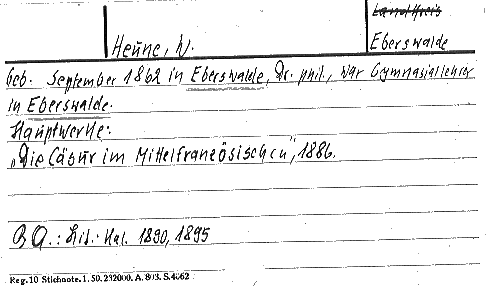 Landkreis
Heune, W.
Eberswalde
Geb. September 1862 in Eberswalde, Dr. phil., war Gymnasiallehrer
in Eberswalde.
Hauptwerke:
„Die Cäsur im Mittelfranzösischen", 1886.
B Q.: Lit. Kal. 1890, 1895
Reg. 10 Stichnote. 1. 50. 232000. A. 803. S. 4062